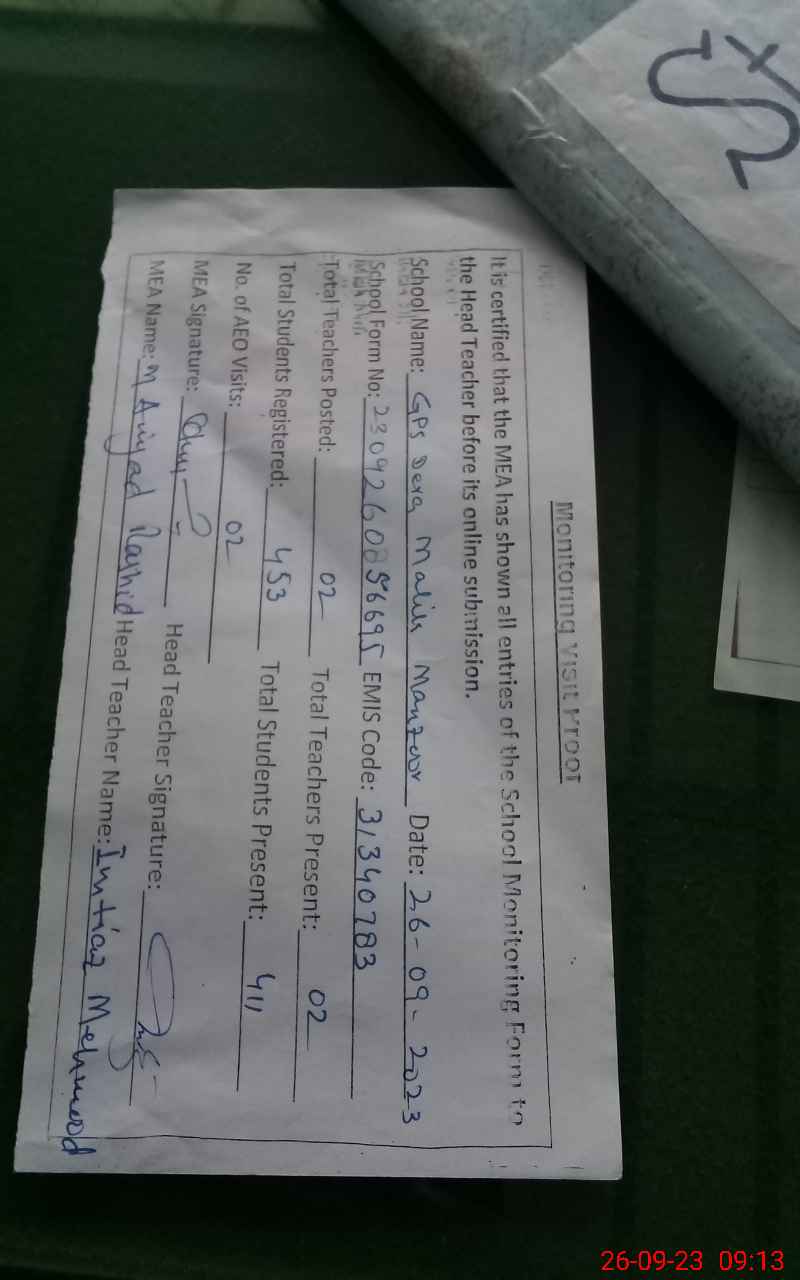 Monitoring Visit Proof
It is certified that the MEA has shown all entries of the School Monitoring Form to
the Head Teacher before its online submission.
School Name: GPS Dera Malik Manzoor Date: 26-09-2023
School Form No: 2309260856695 EMIS Code: 31340783
Total Teachers Posted: 02 Total Teachers Present: 02
Total Students Registered: 453 Total Students Present: 411
No. of AEO Visits: 02
MEA Signature: Head Teacher Signature:
MEA Name: M Amjad Rashid Head Teacher Name: Imtiaz Mehmood
26-09-23 09:13